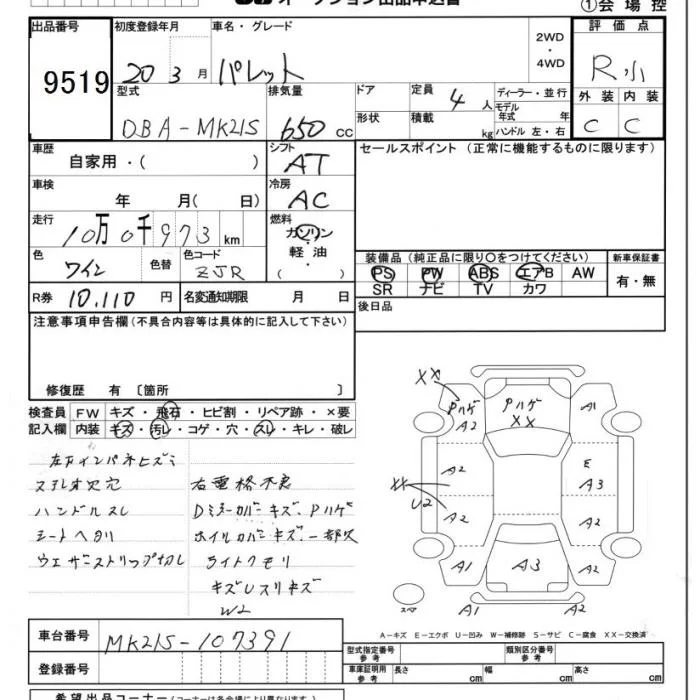 ①会場控
出品番号
9519
初度登録年月
20 3 月
車名・グレード
パレット
2WD
・
4WD
評価点
R小
外装 内装
C C
型式
DBA-MK21S
排気量
650 cc
ドア
形状
定員
4 人
積載
kg
ディーラー・並行
モデル
年式 年
ハンドル 左・右
車歴
自家用・( )
シフト
AT
セールスポイント(正常に機能するものに限ります)
車検
年 月( 日)
冷房
AC
走行
10万0千973 km
燃料
ガソリン
・
軽油
( )
色
ワイン
色替
色コード
ZJR
装備品(純正品に限り○をつけてください)
PS PW ABS エアB AW
SR ナビ TV カワ
新車保証書
有・無
R券 10,110 円
名変通知期限 月 日
後日品
注意事項申告欄(不具合内容等は具体的に記入して下さい)
修復歴 有 〔箇所 〕
検査員
記入欄
FW キズ・飛石・ヒビ割・リペア跡・×要
内装 キズ・汚レ・コゲ・穴・スレ・キレ・破レ
ハンドルスレ
シートヘタリ
右電格不良
Dミラーカバーキズ、Pハゲ
ライトクモリ
W2
XX
Pハゲ
A2
Pハゲ
XX
A1
A2
E
A3
XX
U2
A2
A2
A1
A3
A2
スペア
A1
A2
A-キズ E-エクボ U-凹み W-補修跡 S-サビ C-腐食 XX-交換済
車台番号
MK21S-107391
登録番号
型式指定番号
参考
類別区分番号
参考
車庫証明用
参考
長さ cm 幅 cm 高さ cm
希望出品コーナー